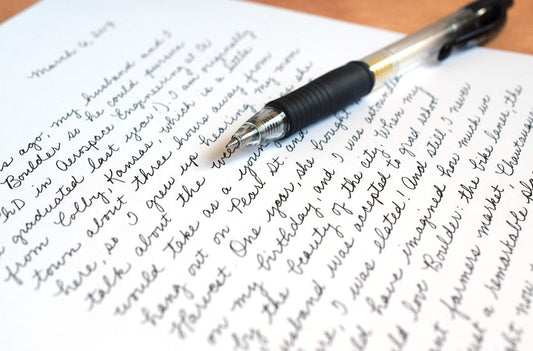 March 6, 2019
ago, my husband and I
Boulder so he could pursue
PhD in Aerospace Engineering at CU
graduated last year). I am originally
from Colby, Kansas, which is a little
town about three hours away from
here, so I grew up hearing my mom
talk about the
would take as a
hang out on Pearl St. and
Harvest One year, she brought
on my birthday, and I was
by the beauty of the city. When my
husband was accepted to grad school
I was elated! And still, I never
have imagined how much we
love Boulder: the bike lanes, the
farmers market, Chautauqua
a remarkable
now